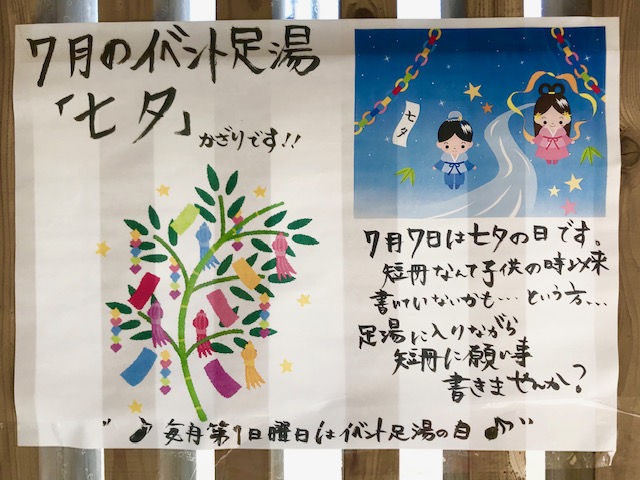 7月のイベント足湯
「七夕」
かざりです!!
七夕
7月7日は七夕の日です。
短冊なんて子供の時以来
書いていないかも…という方…
足湯に入りながら
短冊に願い事
書きませんか?
♪毎月第1日曜日はイベント足湯の日♪